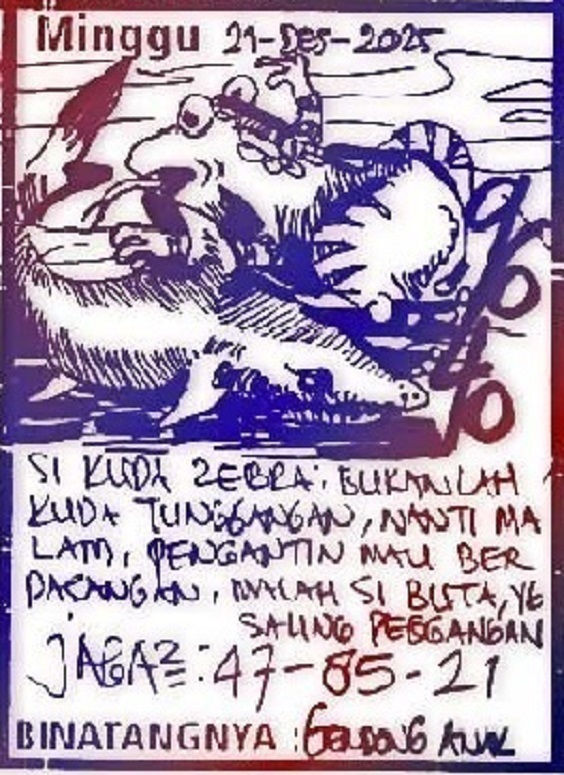 Minggu 21-DES-2025
96
40
SI KUDA ZEBRA. BUKANLAH
KUDA TUNGGANGAN, NANTI MA
LAM, PENGANTIN MAU BER
DAGANGAN, MALAH SI BUTA, YG
SALING PEGGANGAN
JAGA2=:47-85-21
BINATANGNYA : GENDONG ANAK